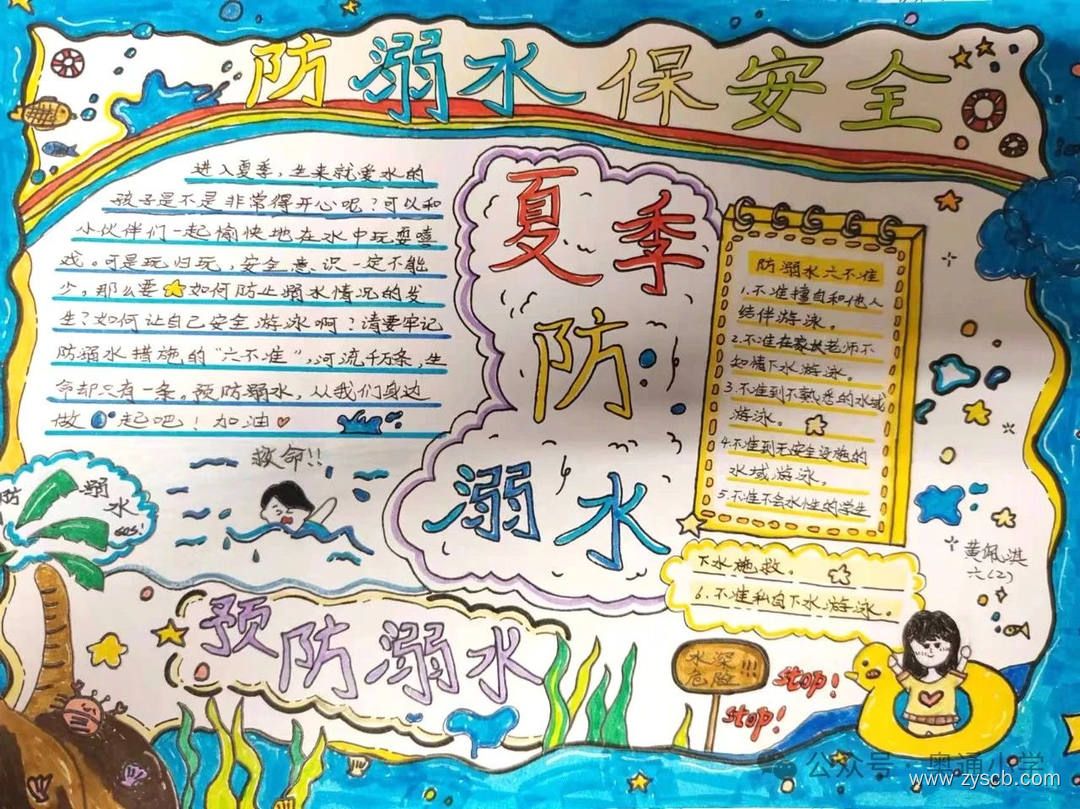 防溺水保安全
进入夏季，生来就爱水的
孩子是不是非常得开心呢？可以和
小伙伴们一起愉快地在水中玩耍嘻
戏。可是玩归玩，安全意识一定不能
少，那么要如何防止溺水情况的发
生？如何让自己安全游泳啊？请要牢记
防溺水措施的“六不准”，河流千万条，生
命却只有一条。预防溺水，从我们身边
做起吧！加油
夏季
防
溺水
防溺水六不准
1.不准擅自和他人
结伴游泳。
2.不准在家长老师不
知情下水游泳。
3.不准到不熟悉的水域
游泳。
4.不准到无安全设施的
水域游泳。
5.不准不会水性的学生
下水施救。
6.不准私自下水游泳。
救命!!
防溺
水
sos!
预防溺水
水深!!!
危险
stop!
stop!
六(2)
公众号·奥通小学
www.zyscb.com